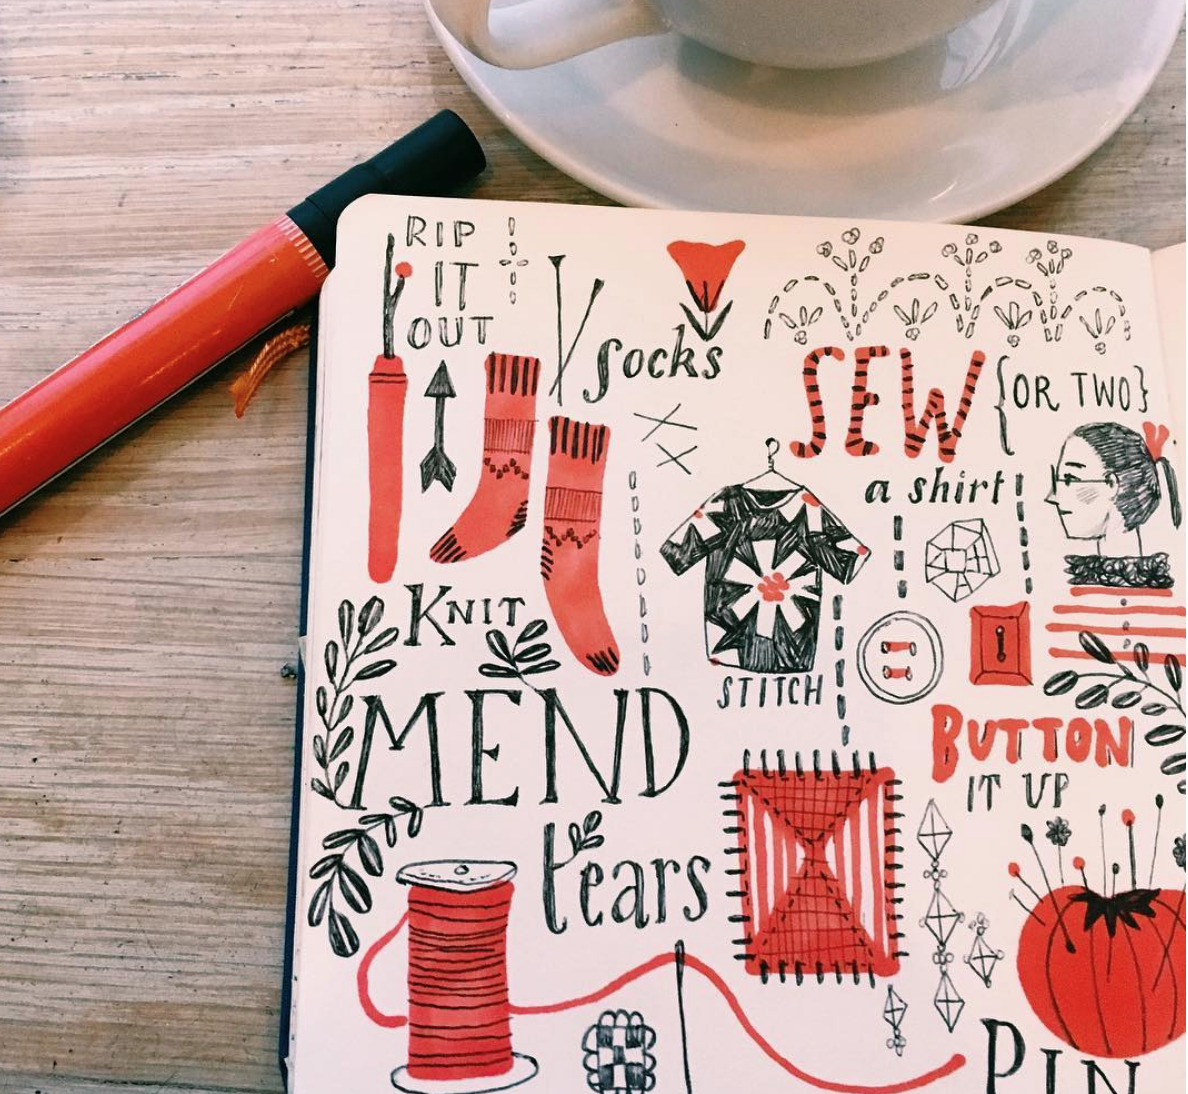 RIP
IT
OUT
Socks
SEW {OR TWO}
a shirt
KNIT
STITCH
MEND
BUTTON
IT UP
tears
PIN